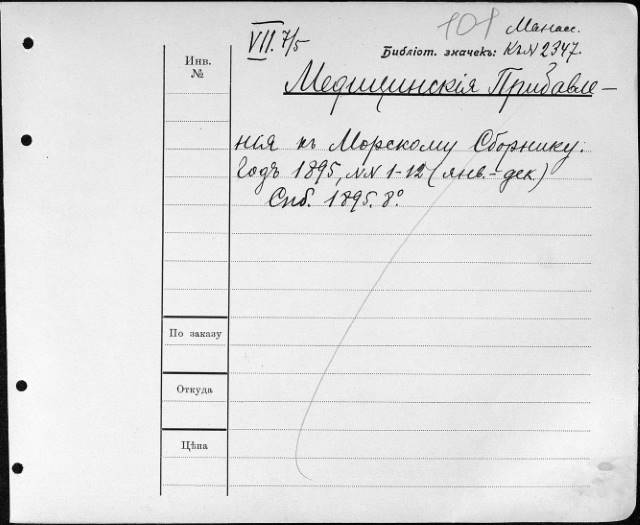 VII. 7/5
101 Манас.
Библіот. значекъ: К.№ 2347.
Инв.
№
Медицинскія Прибавле-
нія къ Морскому Сборнику.
Годъ 1895, №№ 1-12 (янв.-дек.)
Спб. 1895. 8°.
По заказу
Откуда
Цѣна